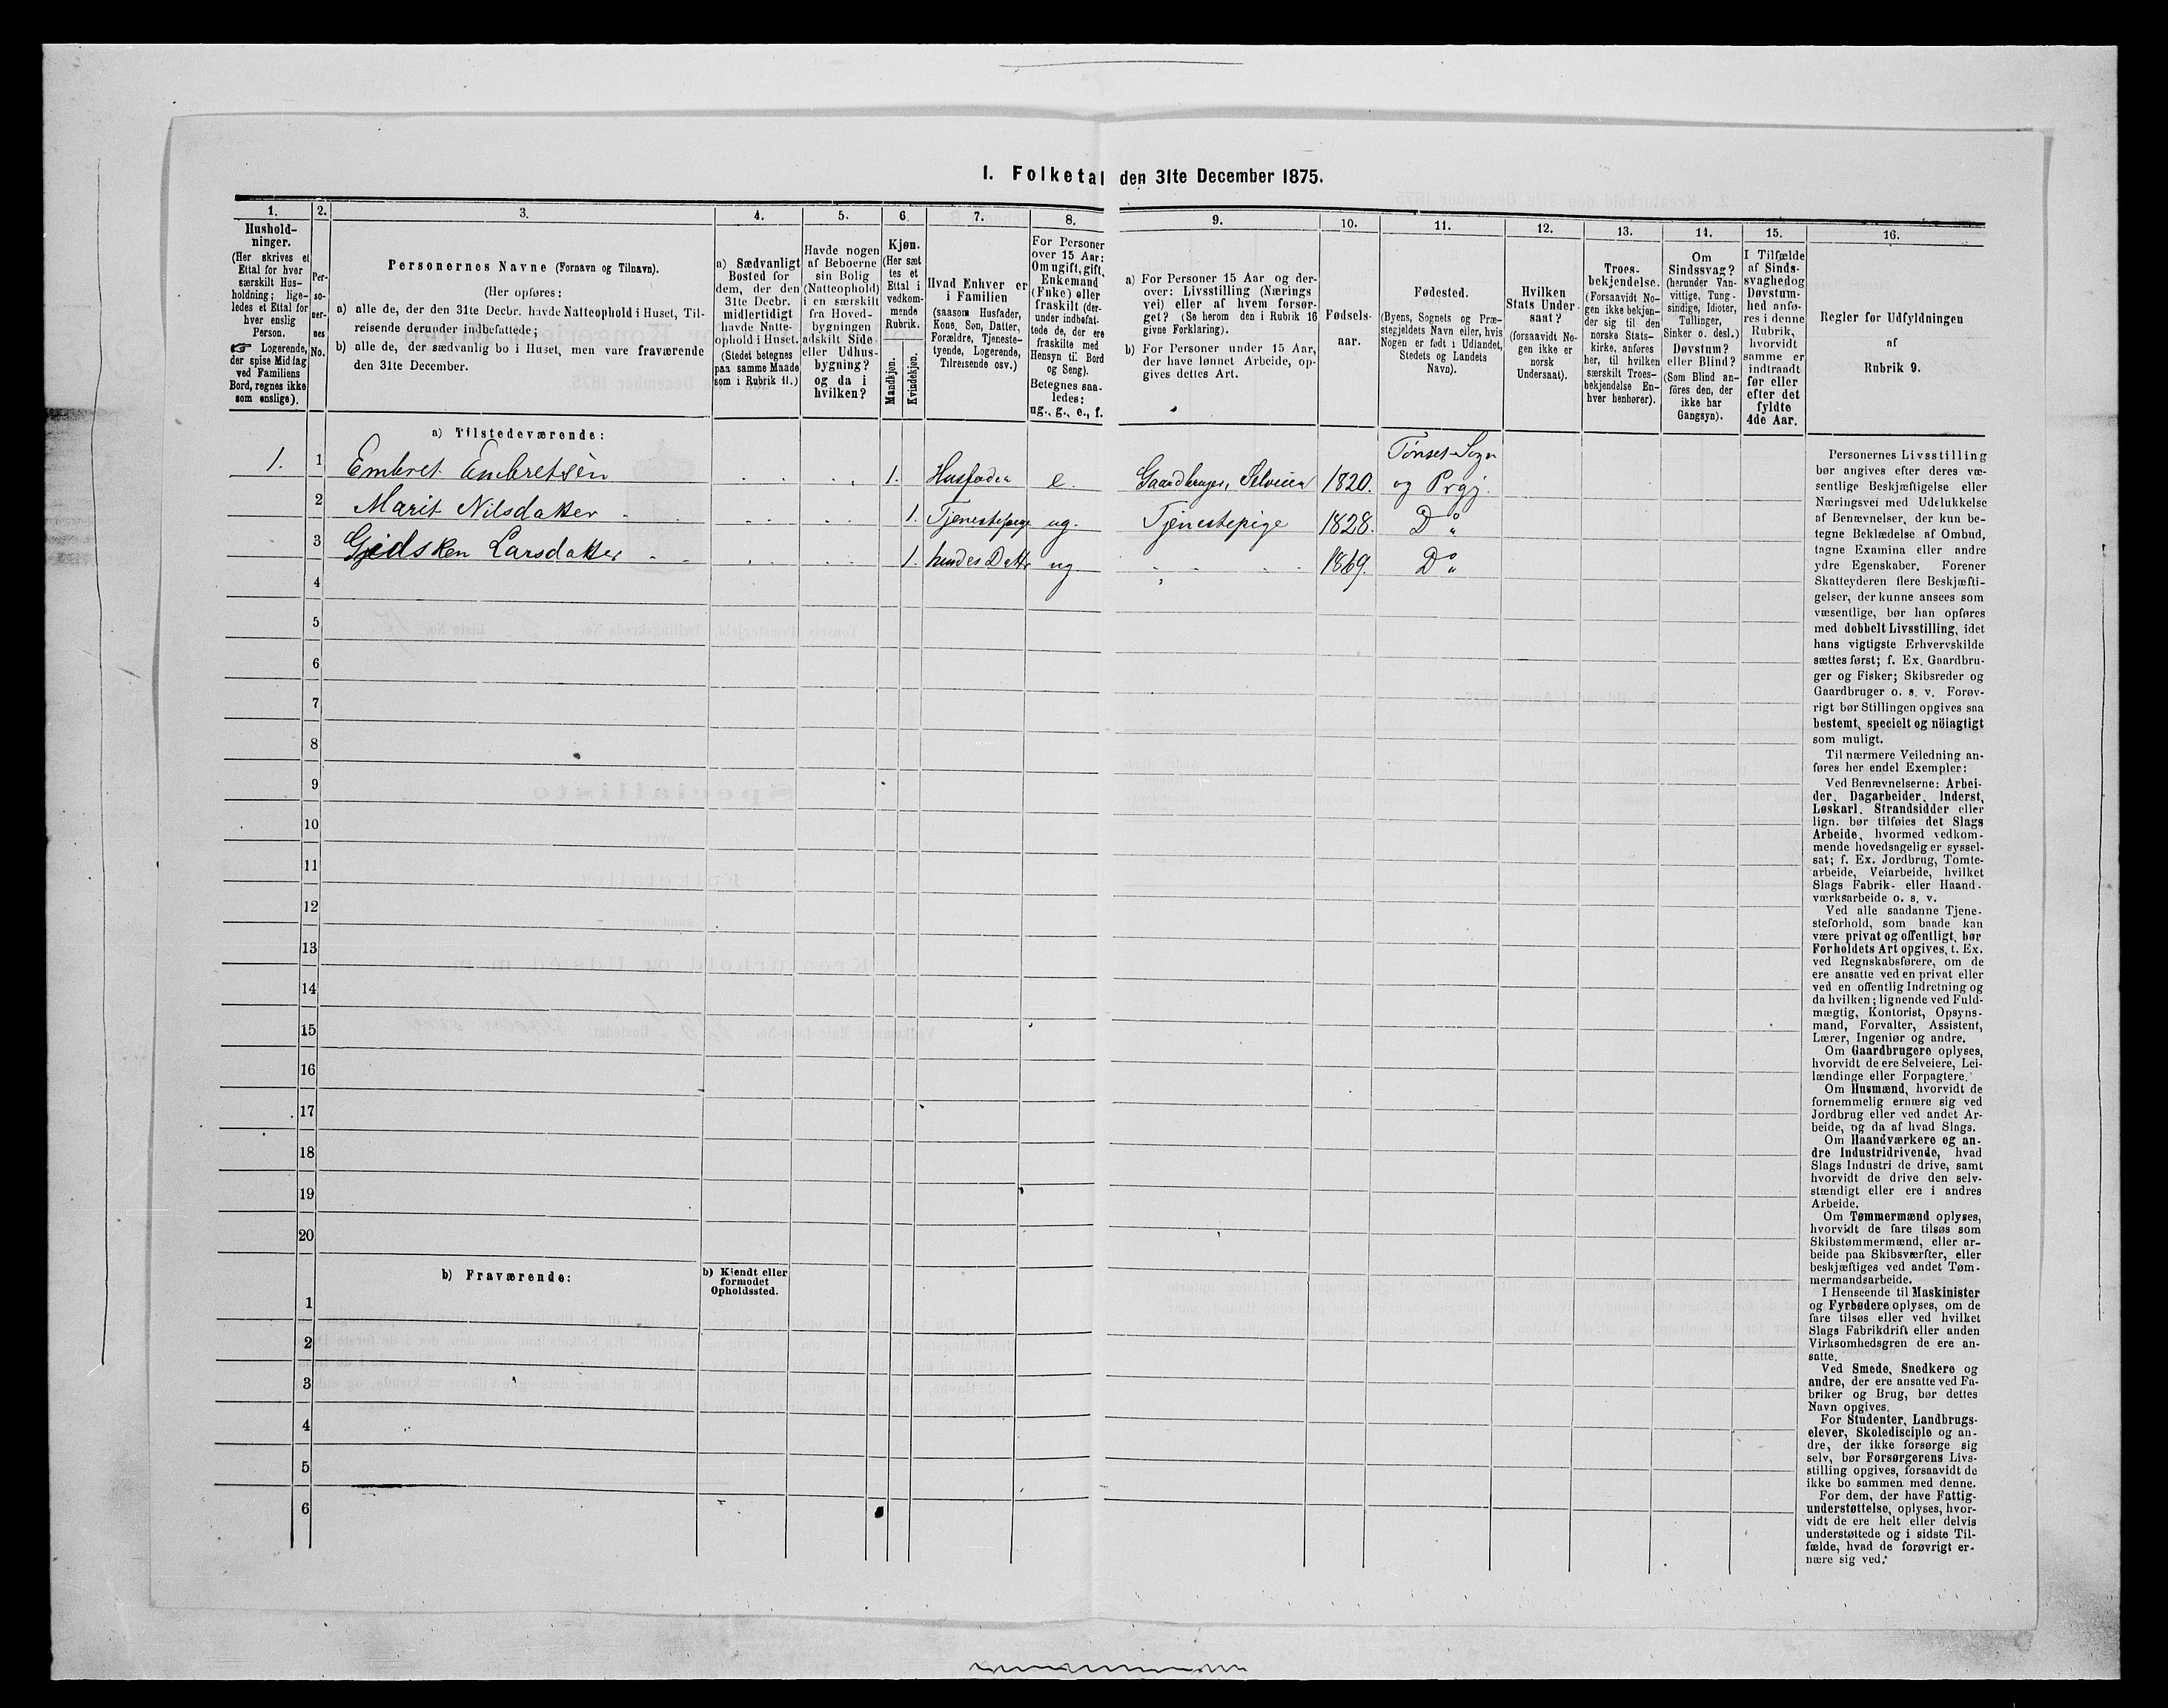 1. Folketal den 31te December 1875.
1.
Hushold-
ninger.
(Her skrives et
Ettal for hver
særskilt Hus-
holdning; lige-
ledes et Ettal for
hver enslig
Person.
☞ Logerende,
der spise Middag
ved Familiens
Bord, regnes ikke
som enslige).
2.
Per-
so-
ner-
nes
No.
3.
Personernes Navne (Fornavn og Tilnavn).
(Her opføres:
a) alle de, der den 31te Decbr. havde Natteophold i Huset, Til-
reisende derunder indbefattede;
b) alle de, der sædvanlig bo i Huset, men vare fraværende
den 31te December.
4.
a) Sædvanligt
Bosted for
dem, der den
31te Decbr.
midlertidigt
havde Natte-
ophold i Huset.
(Stedet betegnes
paa samme Maade
som i Rubrik 11.)
5.
Havde nogen
af Beboerne
sin Bolig
(Natteophold)
i en særskilt
fra Hoved-
bygningen
adskilt Side-
eller Udhus-
bygning?
og da i
hvilken?
6.
Kjøn.
(Her sæt-
tes et
Ettal i
vedkom-
mende
Rubrik.
Mandkjøn.
Kvindekjøn.
7.
Hvad Enhver er
i Familien
(saasom Husfader,
Kone, Søn, Datter,
Forældre, Tjeneste-
tyende, Logerende,
Tilreisende osv.)
8.
For Personer
over 15 Aar:
Om ugift, gift,
Enkemand
(Enke) eller
fraskilt (der-
under indbefat-
tede de, der ere
fraskilte med
Hensyn til Bord
og Seng).
Betegnes saa-
ledes:
ug., g., e., f.
9.
a) For Personer 15 Aar og der-
over: Livsstilling (Nærings-
vei) eller af hvem forsør-
get? (Se herom den i Rubrik 16
givne Forklaring).
b) For Personer under 15 Aar,
der have lønnet Arbeide, op-
gives dettes Art.
10.
Fødsels-
aar.
11.
Fødested.
(Byens, Sognets og Præ-
stegjeldets Navn eller, hvis
Nogen er født i Udlandet,
Stedets og Landets
Navn).
12.
Hvilken
Stats Under-
saat?
(forsaavidt No-
gen ikke er
norsk
Undersaat).
13.
Troes-
bekjendelse.
(Forsaavidt No-
gen ikke bekjen-
der sig til den
norske Stats-
kirke, anføres
her, til hvilken
særskilt Troes-
bekjendelse En-
hver henhører).
14.
Om
Sindssvag?
(herunder Van-
vittige, Tung-
sindige, Idioter,
Tullinger,
Sinker o. desl.)
Døvstum?
eller Blind?
(Som Blind an-
føres den, der
ikke har
Gangsyn).
15.
I Tilfælde
af Sinds-
svaghed og
Døvstum-
hed anfø-
res i denne
Rubrik,
hvorvidt
samme er
indtraadt
før eller
efter det
fyldte
4de Aar.
16.
Regler for Udfyldningen
af
Rubrik 9.
a) Tilstedeværende:
1. 1 Embret Embretsen 1. Husfader e. Gaardbruger, Selveier 1820. Tønset Sogn og Prgj.
2 Marit Nilsdatter 1. Tjenestepige ug. Tjenestepige 1828. Do
3 Gjedsken Larsdatter 1. hendes Dattr ug 1869. Do
4
5
6
7
8
9
10
11
12
13
14
15
16
17
18
19
20
b) Fraværende:
b) Kjendt eller
formodet
Opholdssted.
1
2
3
4
5
6
Personernes Livsstilling
bør angives efter deres væ-
sentlige Beskjæftigelse eller
Næringsvei med Udelukkelse
af Benævnelser, der kun be-
tegne Beklædelse af Ombud,
tagne Examina eller andre
ydre Egenskaber. Forener
Skatteyderen flere Beskjæfti-
gelser, der kunne ansees som
væsentlige, bør han opføres
med dobbelt Livsstilling, idet
hans vigtigste Erhvervskilde
sættes først; f. Ex. Gaardbru-
ger og Fisker; Skibsreder og
Gaardbruger o. s. v. Forøv-
rigt bør Stillingen opgives saa
bestemt, specielt og nöiagtigt
som muligt.
Til nærmere Veiledning an-
føres her endel Exempler:
Ved Benævnelserne: Arbei-
der, Dagarbeider, Inderst,
Løskarl, Strandsidder eller
lign. bør tilføies det Slags
Arbeide, hvormed vedkom-
mende hovedsagelig er syssel-
sat; f. Ex. Jordbrug, Tomte-
arbeide, Veiarbeide, hvilket
Slags Fabrik- eller Haand-
værksarbeide o. s. v.
Ved alle saadanne Tjene-
steforhold, som baade kan
være privat og offentligt, bør
Forholdets Art opgives, t. Ex.
ved Regnskabsførere, om de
ere ansatte ved en privat eller
ved en offentlig Indretning og
da hvilken; lignende ved Fuld-
mægtig, Kontorist, Opsyns-
mand, Forvalter, Assistent,
Lærer, Ingeniør og andre.
Om Gaardbrugere oplyses,
hvorvidt de ere Selveiere, Lei-
lændinge eller Forpagtere.
Om Husmænd, hvorvidt de
fornemmelig ernære sig ved
Jordbrug eller ved andet Ar-
beide, og da af hvad Slags.
Om Haandværkere og an-
dre Industridrivende, hvad
Slags Industri de drive, samt
hvorvidt de drive den selv-
stændigt eller ere i andres
Arbeide.
Om Tømmermænd oplyses,
hvorvidt de fare tilsøs som
Skibstømmermænd, eller ar-
beide paa Skibsværfter, eller
beskjæftiges ved andet Tøm-
mermandsarbeide.
I Henseende til Maskinister
og Fyrbødere oplyses, om de
fare tilsøs eller ved hvilket
Slags Fabrikdrift eller anden
Virksomhedsgren de ere an-
satte.
Ved Smede, Snedkere og
andre, der ere ansatte ved Fa-
briker og Brug, bør dettes
Navn opgives.
For Studenter, Landbrugs-
elever, Skoledisciple og an-
dre, der ikke forsørge sig
selv, bør Forsørgerens Livs-
stilling opgives, forsaavidt de
ikke bo sammen med denne.
For dem, der have Fattig-
understøttelse, oplyses, hvor-
vidt de ere helt eller delvis
understøttede og i sidste Til-
fælde, hvad de forøvrigt er-
nære sig ved.